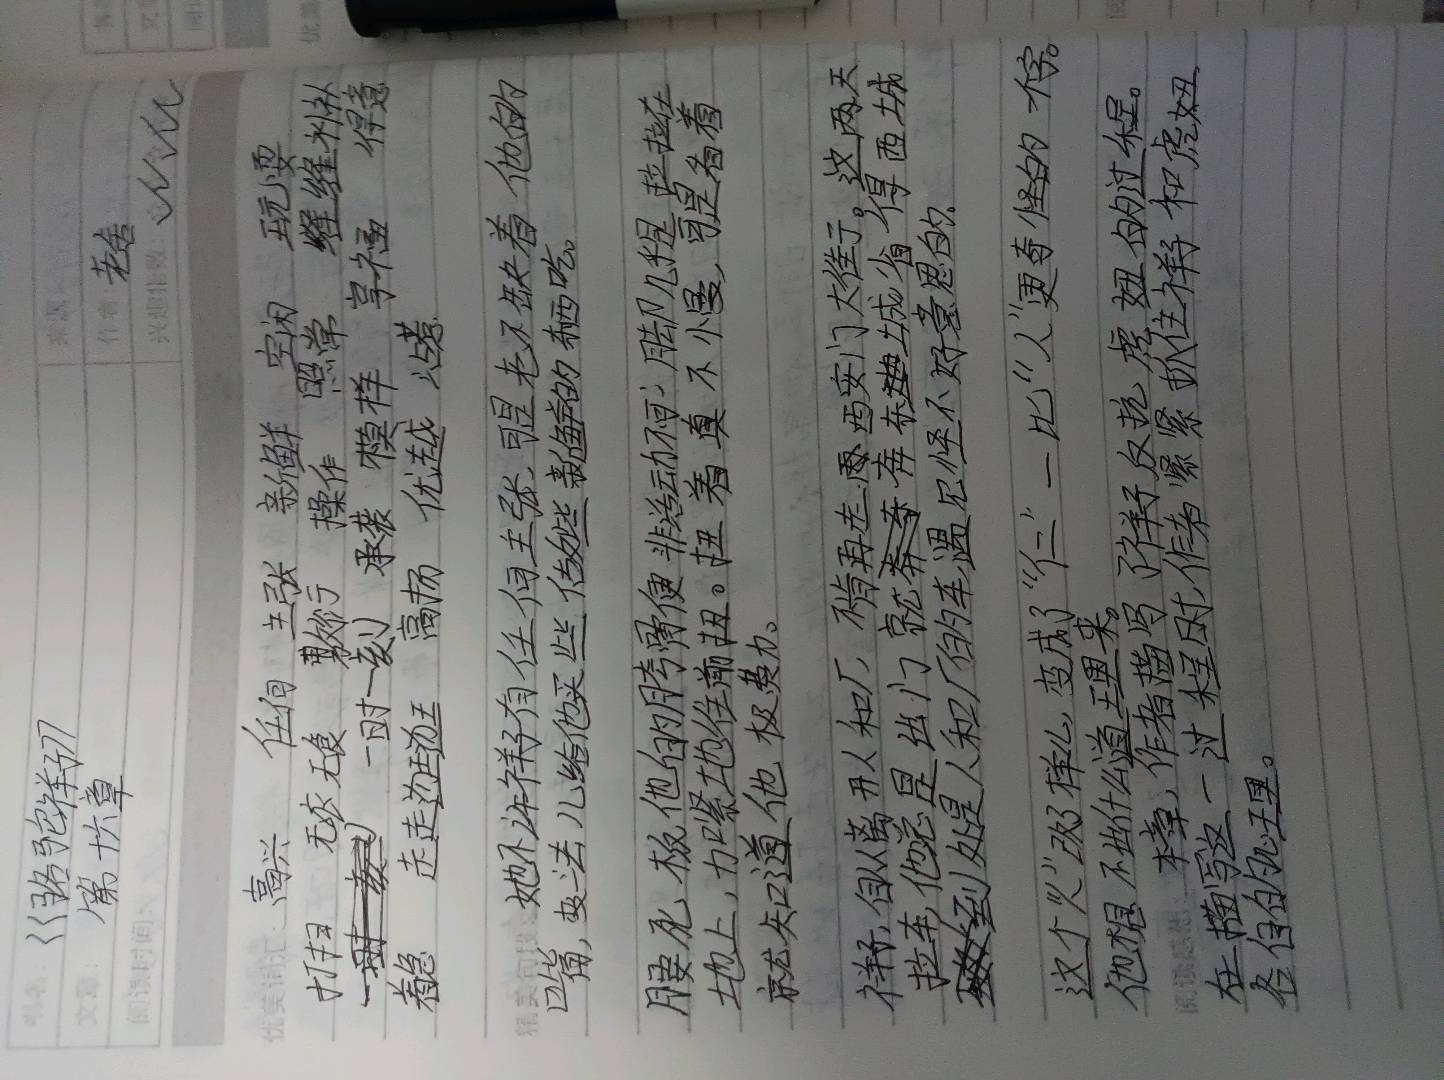 书名：《骆驼祥子》 来源：
文章：第十六章 作者：老舍
阅读时间： 兴趣指数：
优美词汇：高兴 任何 主张 新鲜 空闲 玩耍
打扫 无衣无食 敷衍 操作 照常 缝缝补补
一时一刻 承袭 模样 享福 得意
着急 走走逛逛 高扬 优越
她不许祥子有任何主张，可是老不缺着他的
嘴，变法儿给他买些做些新鲜的东西吃。
腰死，板，他的胯骨便非活动不可；脚几乎是拉拉在
地上，加紧地往前扭。扭着真不小慢，可是看着
就知道他极费力。
祥子，自从离开人和厂，不肯再走西安门大街。这两天
拉车，他总是出门就奔东城，省得西城
到处是人和厂的车，遇见怪不好意思的。
这个"人"改了样儿，变成了"仁"—比"人"更奇怪的字。
他想不出什么道理来。
阅读感想：本章，作者描写了祥子反抗虎妞的过程。
在描写这一过程时，作者紧紧抓住祥子和虎妞
各自的心理。